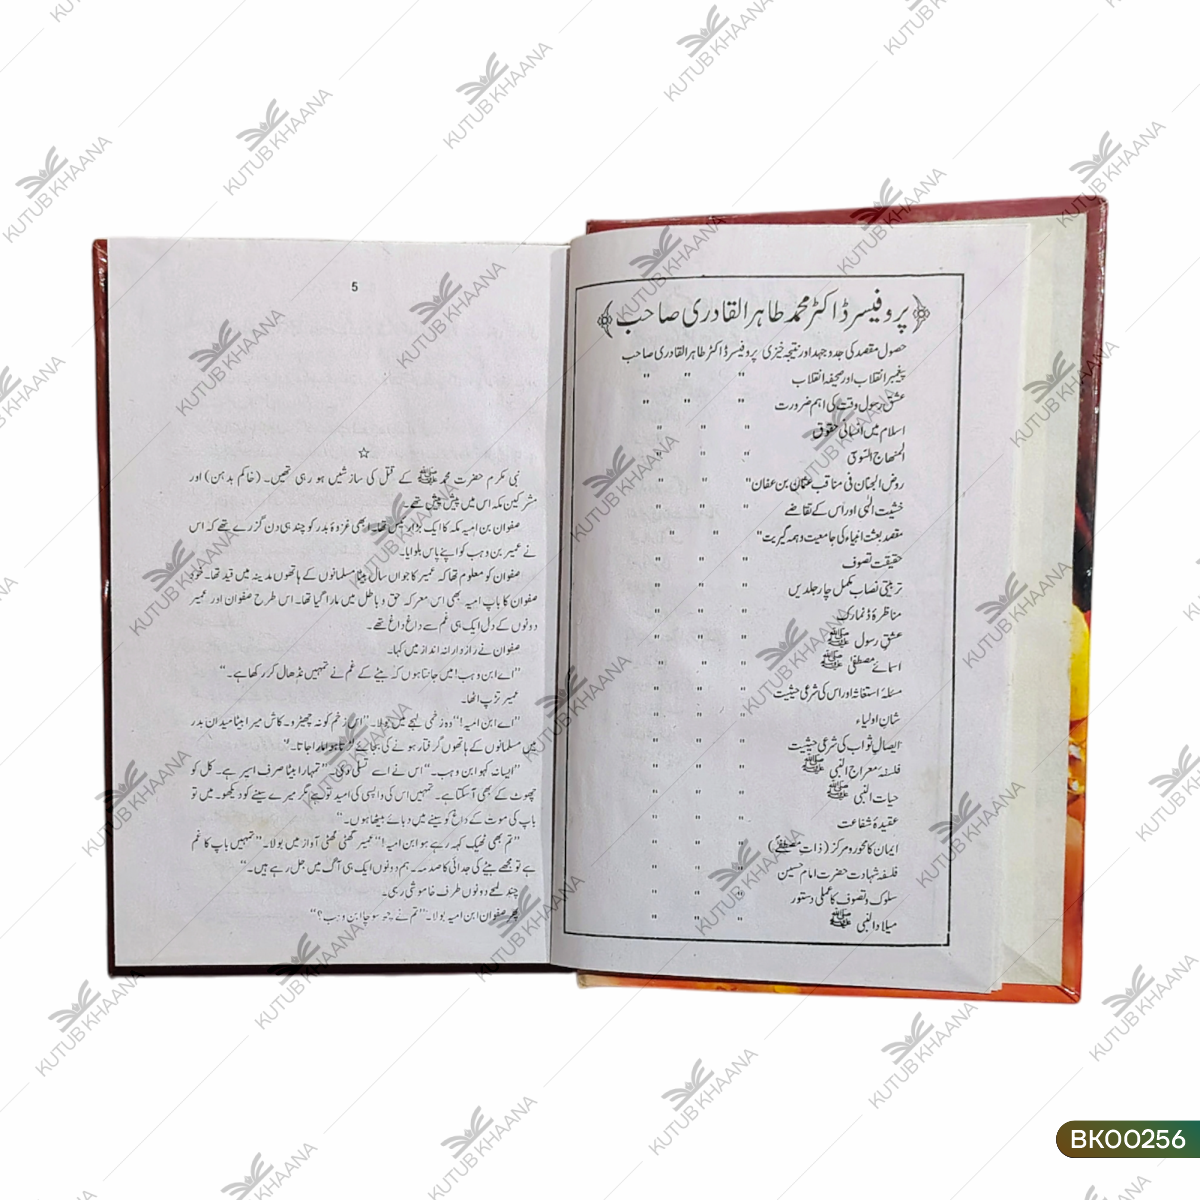 ﴿پروفیسر ڈاکٹر محمد طاہر القادری صاحب﴾
حصول مقصد کی جدوجہد اور نتیجہ خیزی پروفیسر ڈاکٹر طاہر القادری صاحب
پیغمبر انقلاب اور صحیفہ انقلاب " " "
عشق رسول وقت کی اہم ضرورت " " "
اسلام میں انسانی حقوق " " "
المنہاج السوی " " "
روض الجنان فی مناقب عثمان بن عفان" " "
خشیت الٰہی اور اس کے تقاضے " " "
مقصد بعثت انبیاء کی جامعیت و ہمہ گیریت" " "
حقیقت تصوف " " "
تربیتی نصاب مکمل چار جلدیں " " "
مناظرۂ ڈنمارک " " "
عشق رسول ﷺ " " "
اسمائے مصطفیٰ ﷺ " " "
مسئلۂ استغاثہ اور اس کی شرعی حیثیت " " "
شان اولیاء " " "
ایصال ثواب کی شرعی حیثیت " " "
فلسفۂ معراج النبی ﷺ " " "
حیات النبی ﷺ " " "
عقیدۂ شفاعت " " "
ایمان کا محور و مرکز (ذات مصطفیٰ) " " "
فلسفہ شہادت حضرت امام حسین " " "
سلوک و تصوف کا عملی دستور " " "
میلاد النبی ﷺ " " "
5
☆
نبی مکرم حضرت محمد ﷺ کے قتل کی سازشیں ہو رہی تھیں۔ (خاکم بدہن) اور
مشرکین مکہ اس میں پیش پیش تھے۔
صفوان بن امیہ مکہ کا ایک بڑا رئیس تھا۔ ابھی غزوۂ بدر کو چند ہی دن گزرے تھے کہ اس
نے عمیر بن وہب کو اپنے پاس بلوایا۔
صفوان کو معلوم تھا کہ عمیر کا جواں سال بیٹا مسلمانوں کے ہاتھوں مدینہ میں قید تھا۔ خود
صفوان کا باپ امیہ بھی اس معرکہ حق و باطل میں مارا گیا تھا۔ اس طرح صفوان اور عمیر
دونوں کے دل ایک ہی غم سے داغ داغ تھے۔
صفوان نے رازدارانہ انداز میں کہا۔
"اے ابن وہب! میں جانتا ہوں کہ بیٹے کے غم نے تمہیں نڈھال کر رکھا ہے۔"
عمیر تڑپ اٹھا۔
"اے ابن امیہ!" وہ زخمی لہجے میں بولا۔ "اس زخم کو نہ چھیڑو۔ کاش میرا بیٹا میدان بدر
میں مسلمانوں کے ہاتھوں گرفتار ہونے کی بجائے لڑتا ہوا مارا جاتا۔"
"ایسا نہ کہو ابن وہب۔" اس نے اسے تسلی دی۔ "تمہارا بیٹا صرف اسیر ہے۔ کل کو
چھوٹ کے بھی آ سکتا ہے۔ تمہیں اس کی واپسی کی امید تو ہے مگر میرے سینے کو دیکھو۔ میں تو
باپ کی موت کے داغ کو سینے میں دبائے بیٹھا ہوں۔"
"تم بھی ٹھیک کہہ رہے ہو ابن امیہ!" عمیر گھٹی گھٹی آواز میں بولا۔ "تمہیں باپ کا غم
ہے تو مجھے بیٹے کی جدائی کا صدمہ۔ ہم دونوں ایک ہی آگ میں جل رہے ہیں۔"
چند لمحے دونوں طرف خاموشی رہی۔
پھر صفوان ابن امیہ بولا۔ "تم نے کچھ سوچا ابن وہب؟"
KUTUB KHAANA
BK00256